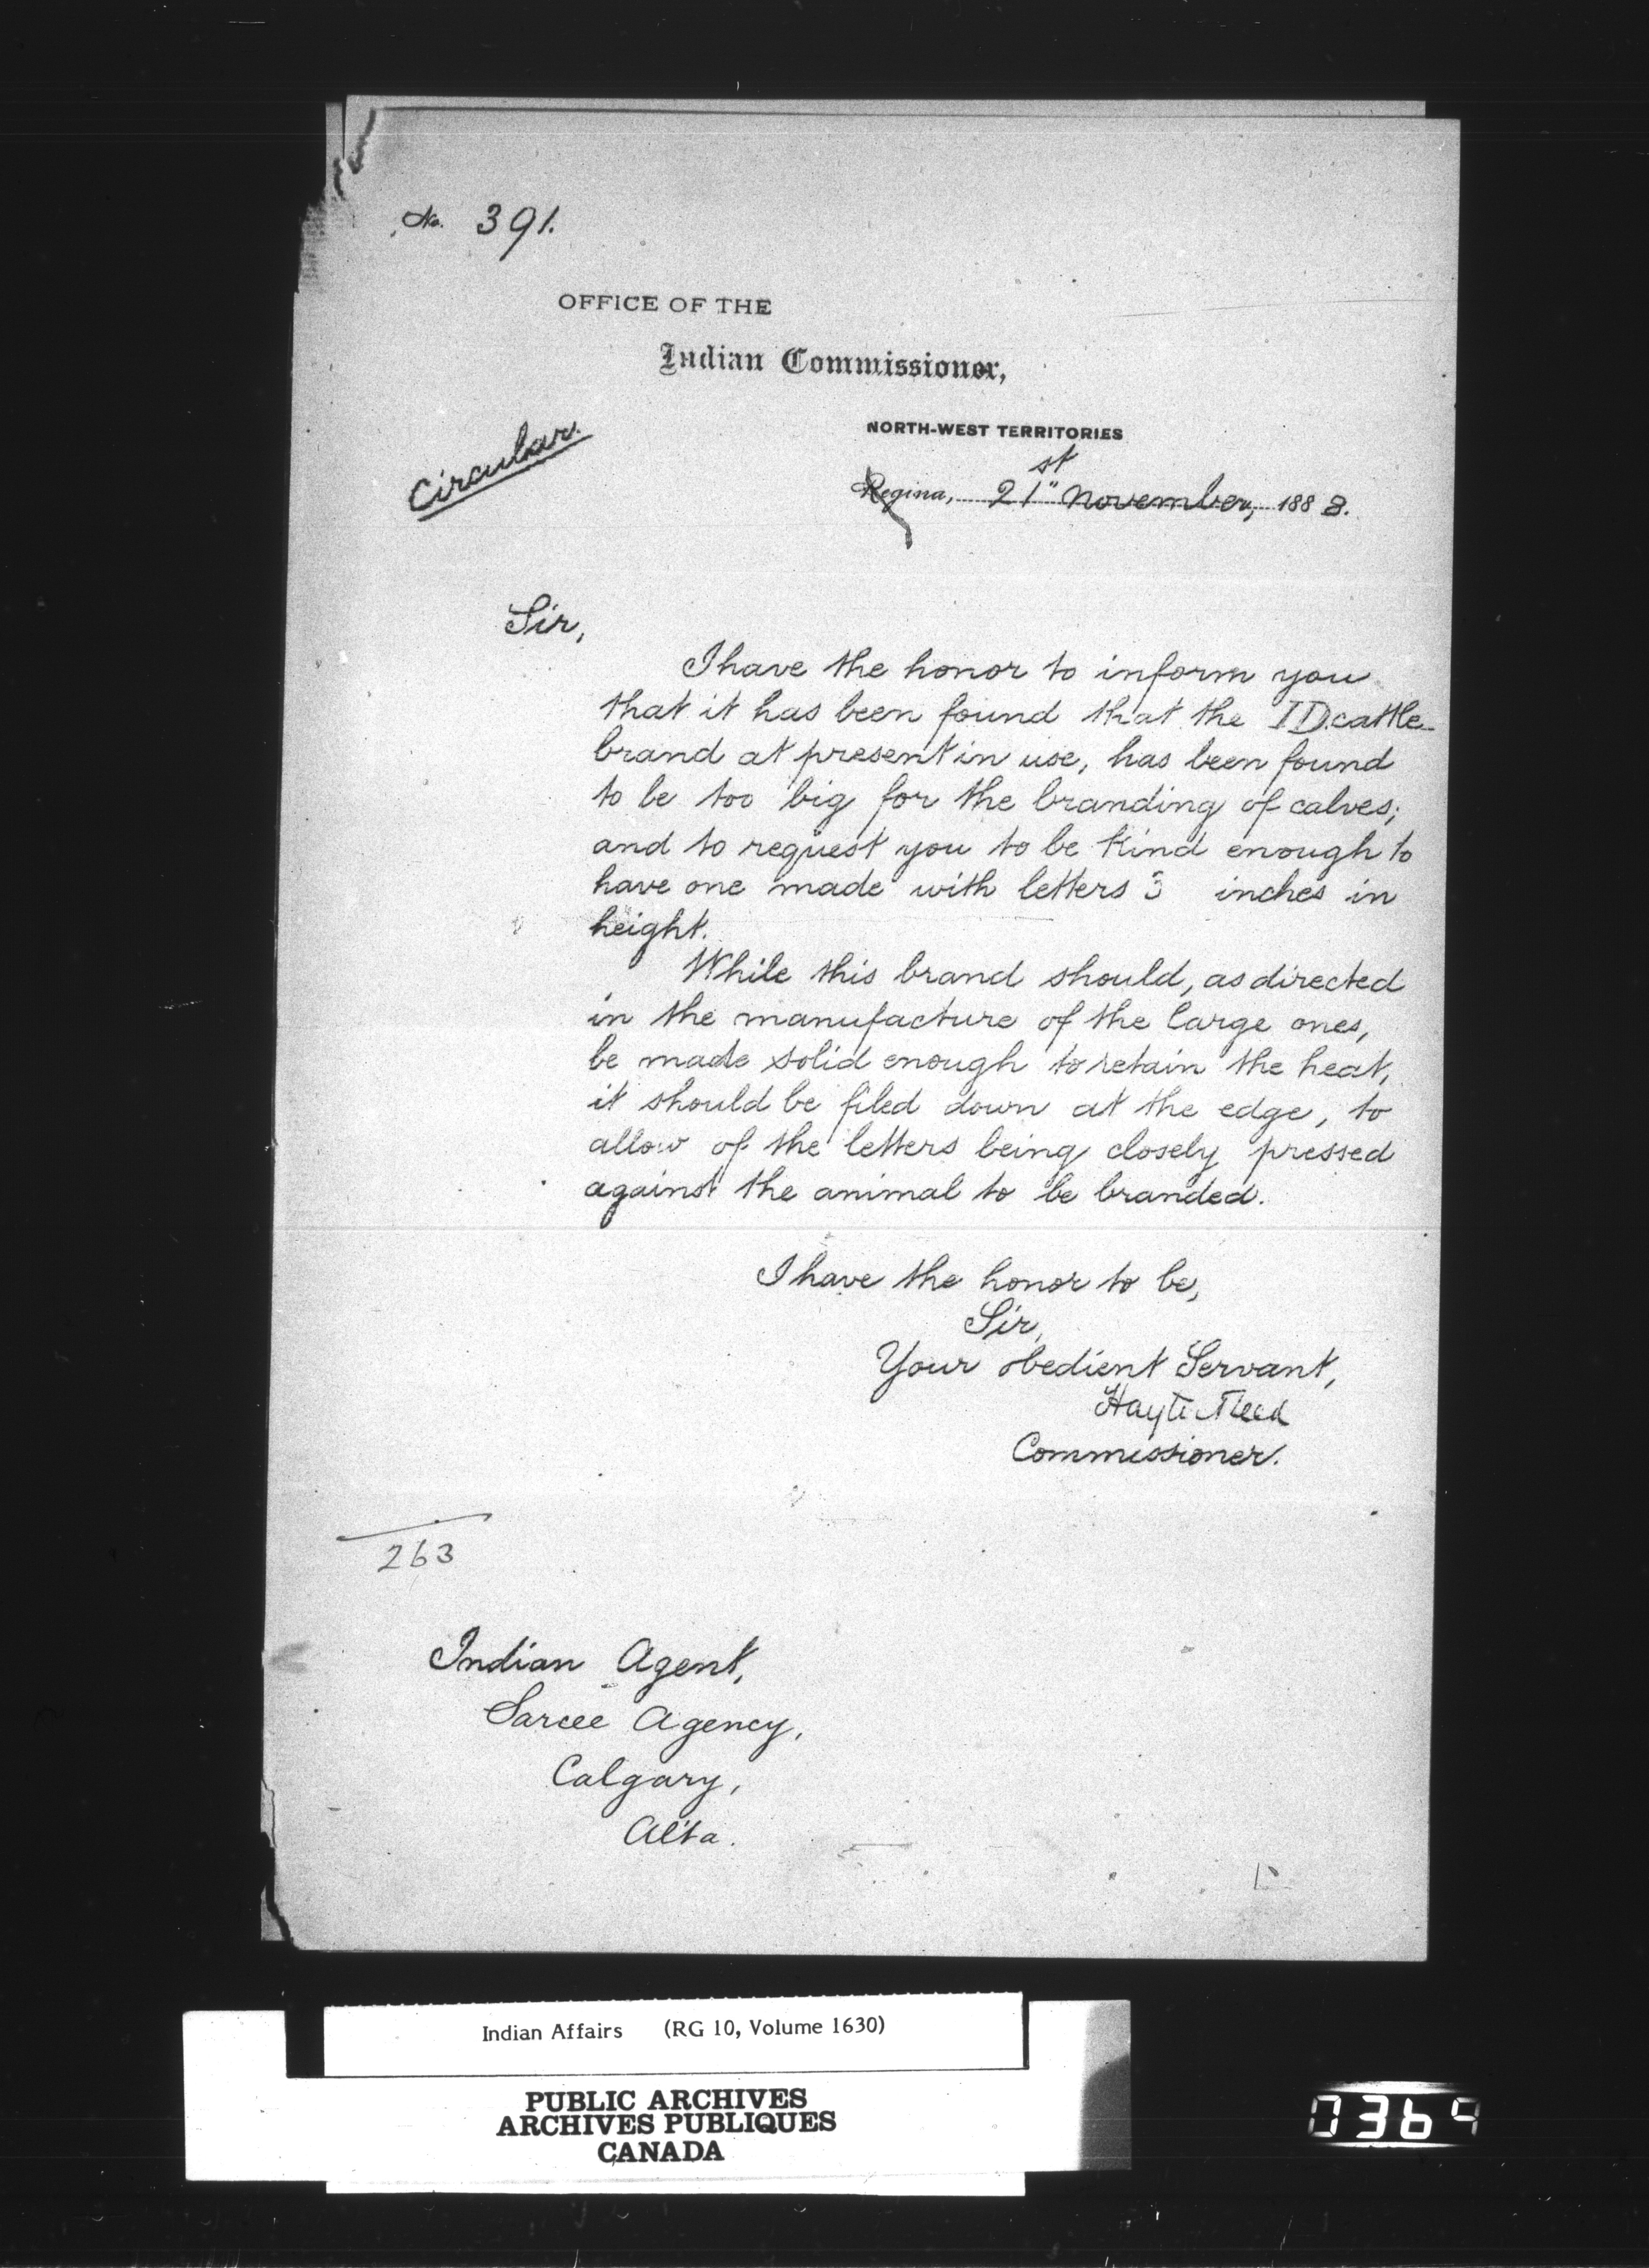 No. 391.
OFFICE OF THE
Indian Commissioner,
NORTH-WEST TERRITORIES
Circular.
Regina, 21st November, 1888.
Sir,
I have the honor to inform you
that it has been found that the ID cattle
brand at present in use, has been found
to be too big for the branding of calves;
and to request you to be kind enough to
have one made with letters 3 inches in
height.
While this brand should, as directed
in the manufacture of the large ones,
be made solid enough to retain the heat,
it should be filed down at the edge, to
allow of the letters being closely pressed
against the animal to be branded.
I have the honor to be,
Sir,
Your obedient Servant,
Hayter Reed
Commissioner.
263
Indian Agent,
Sarcee Agency,
Calgary,
Alta.
Indian Affairs (RG 10, Volume 1630)
PUBLIC ARCHIVES
ARCHIVES PUBLIQUES
CANADA
0364